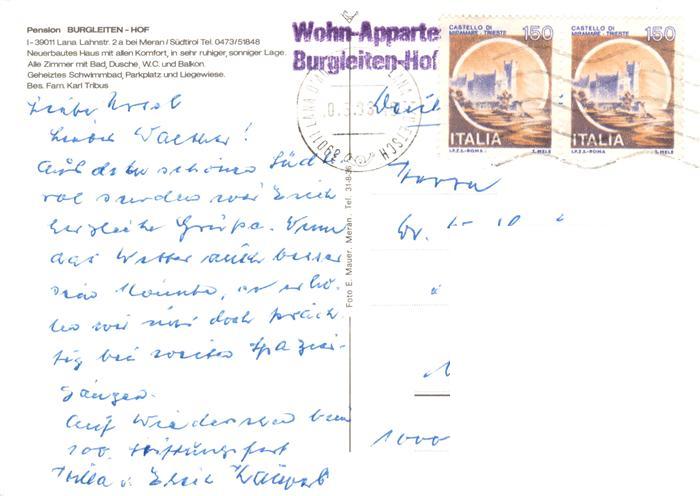 Pension BURGLEITEN - HOF
I - 39011 Lana. Lahnstr. 2 a bei Meran / Südtirol Tel. 0473/51848
Neuerbautes Haus mit allen Komfort, in sehr ruhiger, sonniger Lage.
Alle Zimmer mit Bad, Dusche, W.C. und Balkon.
Geheiztes Schwimmbad, Parkplatz und Liegewiese.
Bes. Fam. Karl Tribus
Wohn-Apparte
Burgleiten-Hof
CASTELLO DI
MIRAMARE - TRIESTE
150
ITALIA
I.P.Z.S.-ROMA
T. MELE
CASTELLO DI
MIRAMARE - TRIESTE
150
ITALIA
I.P.Z.S.-ROMA
T. MELE
39011 LANA D'A
Liebe
Lieber Walther!
Aus dem schönen Süd-
rol senden wir Euch
herzliche Grüße. Wenn
das Wetter auch besser
sein könnte, so erho-
len wir uns doch präch-
tig bei weiten Spazier-
gängen.
Auf Wiedersehen beim
100. Stiftungsfest
Foto E. Mauer, Meran. Tel. 31-8-36
Herrn
1000